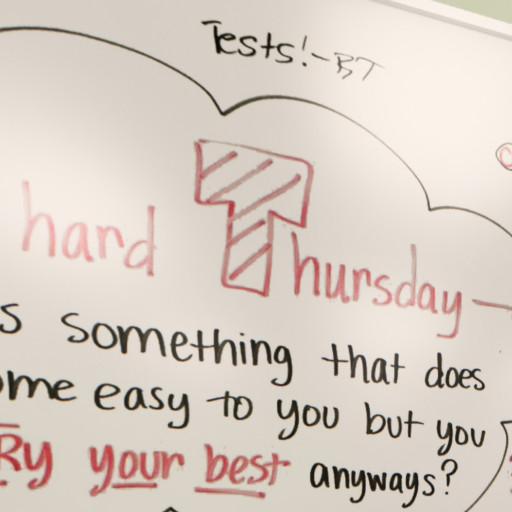 Tests!-BT
hard Thursday-
s something that does
ome easy to you but you
Ry your best anyways?